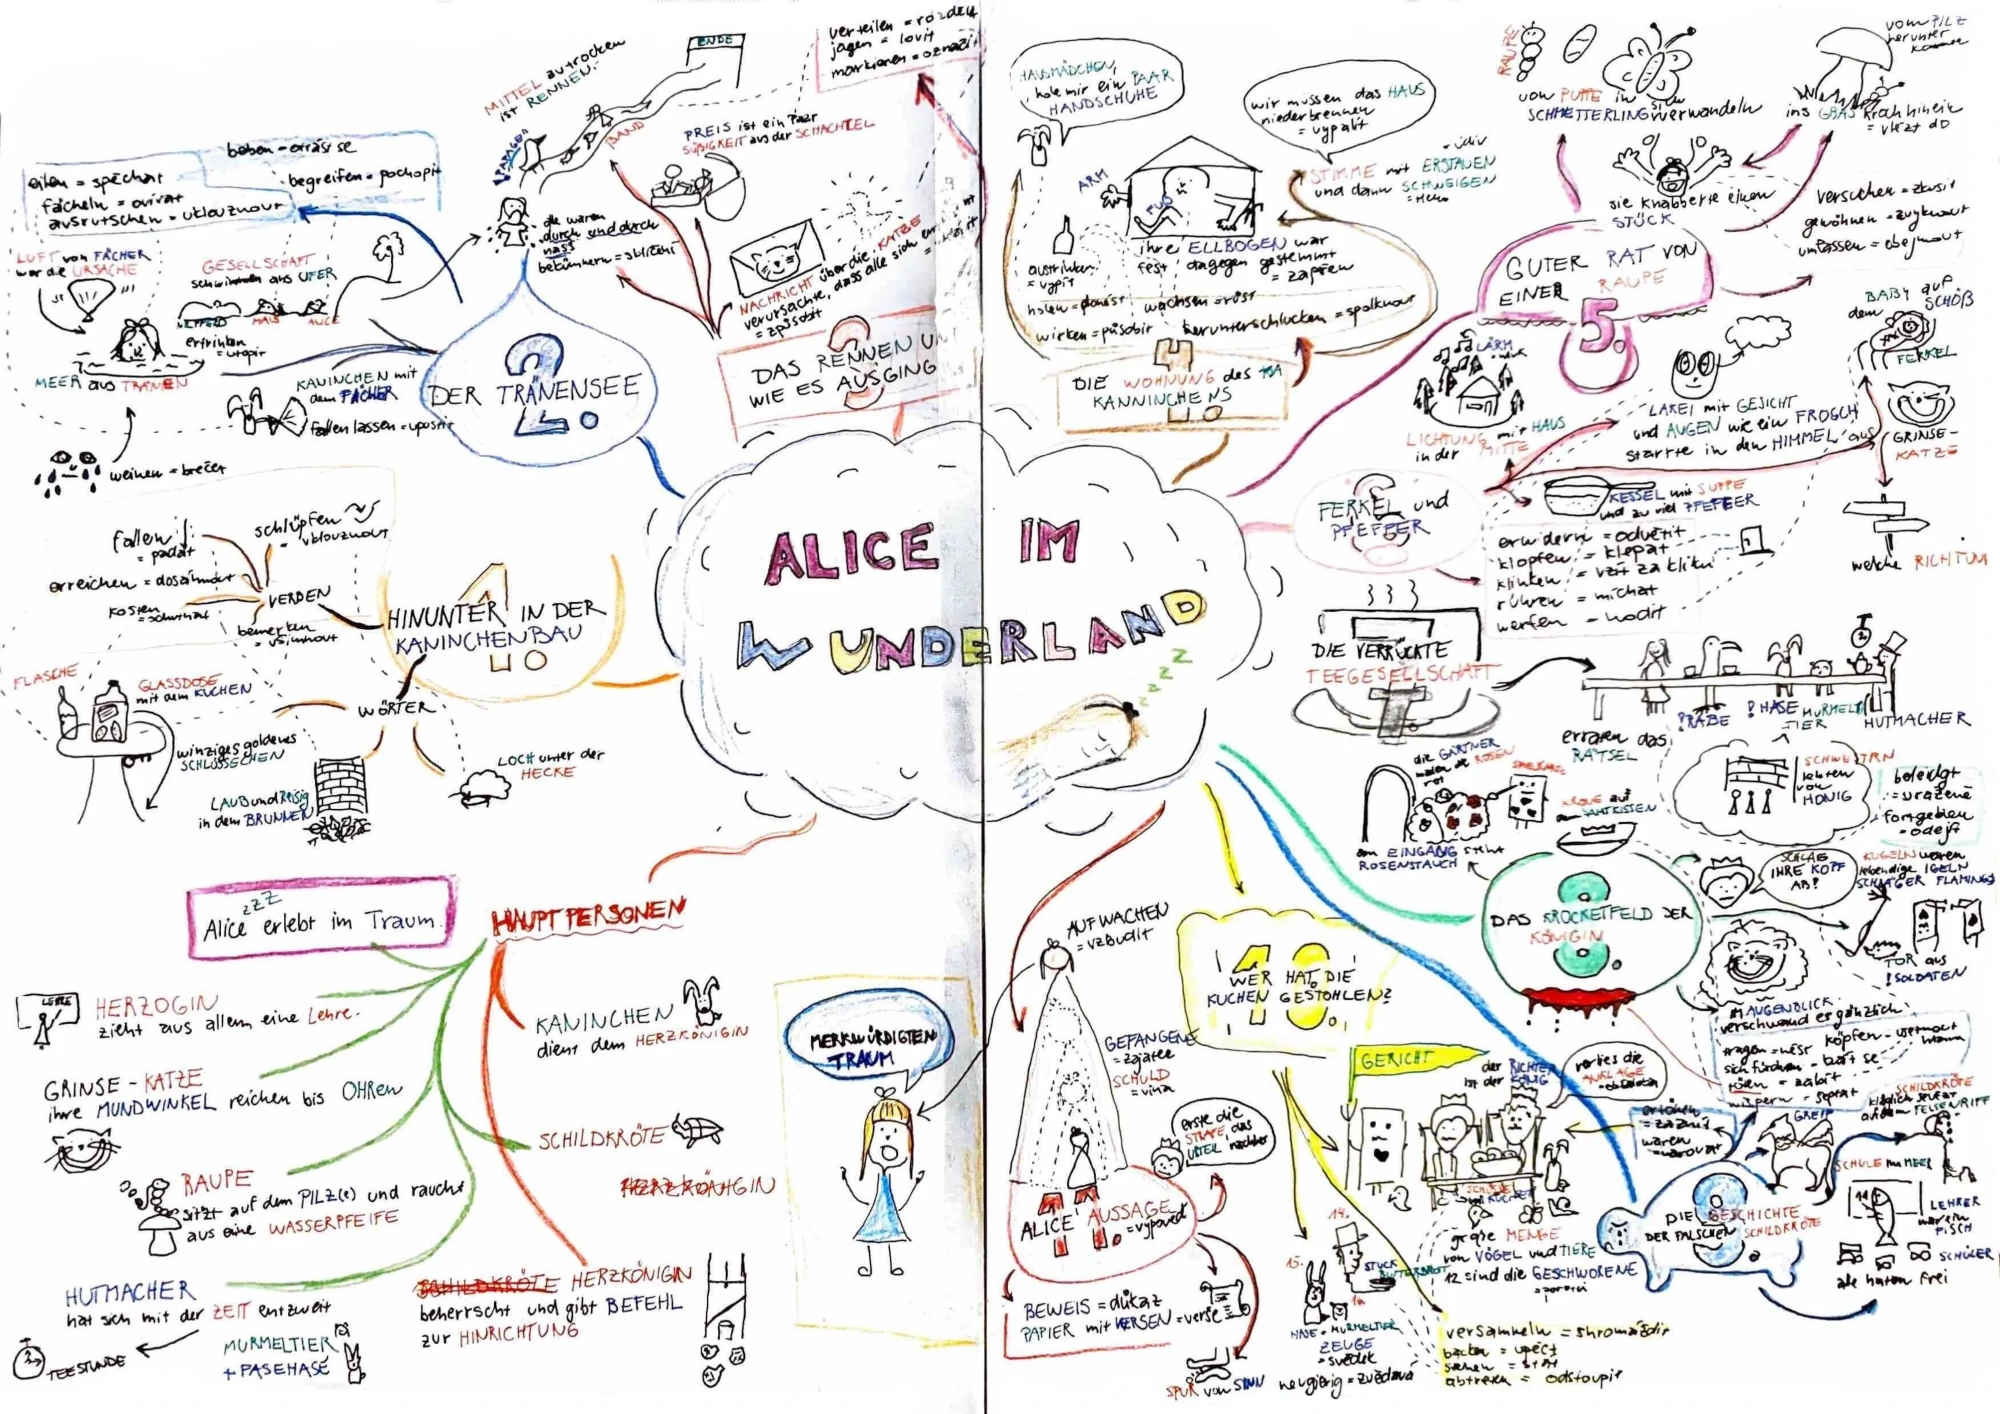 ALICE IM
WUNDERLAND
zzzzz
1.
HINUNTER IN DER
KANINCHENBAU
VERBEN
fallen
= padat
schlüpfen
= vklouznout
erreichen = dosáhnout
bemerken
WÖRTER
FLASCHE
GLASSDOSE
mit dem KUCHEN
winziges goldenes
SCHLÜSSECHEN
LAUB und Reisig
in dem BRUNNEN
LOCH unter der
HECKE
2.
DER TRÄNENSEE
beben - otřást se
eilen = spěchat
begreifen - pochopit
fächeln = ovívat
ausrutschen = uklouznout
LUFT von FÄCHER
war die URSACHE
GESELLSCHAFT
schwimmen ans UFER
MAUS
ALICE
ertrinken
= utopit
MEER aus TRÄNEN
KANINCHEN mit
dem FÄCHER
fallen lassen = upustit
weinen = brečet
3.
DAS RENNEN U
WIE ES AUSGING
MITTEL zu trocken
ist RENNEN.
ENDE
PAPAGEI
BAND
verteilen = rozděl
jagen = lovit
markieren = označi
PREIS ist ein Paar
SÜßIGKEIT aus der SCHACHTEL
die waren
durch und durch
nass
NACHRICHT über die KATZE
verursachte, dass alle sich
= způsobit
4.
DIE WOHNUNG des
KANNINCHENS
HAUSMÄDCHEN,
hole mir ein PAAR
HANDSCHUHE
wir müssen das HAUS
niederbrennen
= vypálit
ARM
FUß
STIMME mit ERSTAUNEN
und dann SCHWEIGEN
ihre ELLBOGEN war
fest dagegen gestemmt
= zapřen
austrinken
= vypít
holen = donést
wachsen = růst
wirken = působit
herunterschlucken = spolknout
5.
GUTER RAT VON
EINER RAUPE
RAUPE
von PUPPE in
SCHMETTERLING verwandeln
vom PILZ
herunter
ins GRAS kroch hinein
= vlézt do
sie knabberte einen
STÜCK
versuchen = zkusit
gewöhnen = zvyknout
umfassen = obejmout
6
FERKEL und
PFEFFER
LÄRM
LICHTUNG mit HAUS
in der MITTE
LAKEI mit GESICHT
und AUGEN wie ein FROSCH
starrte in den HIMMEL aus
BABY auf
dem SCHOß
FERKEL
GRINSE-
KATZE
KESSEL mit SUPPE
und zu viel PFEFFER
erwidern = odvětit
klopfen = klepat
klinken = vzít za kliku
rühren = míchat
werfen = hodit
welche RICHTUN
DIE VERRÜCKTE
TEEGESELLSCHAFT
7
HASE
MURMELTIER
HUTMACHER
erraten das
RÄTSEL
SCHWESTRN
lebten
von
HONIG
beleidigt
= uražené
fortgehen
= odejít
8.
DAS KROCKETFELD DER
KÖNIGIN
die GÄRTNER
malen die ROSEN
rot
SPIELKARTE
am EINGANG steht
ROSENSTAUCH
KRONE auf
SAMTKISSEN
SCHLAG
IHRE KOPF
AB!
KUGELN waren
lebendige IGELN
SCHLÄGER FLAMINGO
TOR aus
SOLDATEN
im AUGENBLICK
verschwand es gänzlich
tragen = nést
sich fürchten = bát se
töten = zabít
wispern = šeptat
9
DIE GESCHICHTE
DER FALSCHEN SCHILDKRÖTE
GREIF
SCHILDKRÖTE
kläglich seufzt
auf dem FELSENRIFF
SCHULE im MEER
LEHRER
war ein
FISCH
SCHÜLER
alle hatten frei
10.
WER HAT DIE
KUCHEN GESTOHLEN?
GERICHT
der RICHTER
ist der KÖNIG
vorlies die
ANKLAGE
große MENGE
von VÖGEL und TIERE
12 sind die GESCHWORENE
= porotci
14.
15.
STÜCK
BUTTERBROT
HASE + MURMELTIER
ZEUGE
= svědek
neugierig = zvědavá
versammeln = shromáždit
backen = upéct
stehen = stát
abtreten = odstoupit
11.
ALICE AUSSAGE
= výpověď
AUFWACHEN
= vzbudit
GEFANGENE
= zajatec
SCHULD
= vina
erste die
STRAFE, das
URTEIL nachher
BEWEIS = důkaz
PAPIER mit VERSEN = verše
SPUR von SINN
MERKWÜRDIGTEN
TRAUM
HAUPTPERSONEN
zzz
Alice erlebt im Traum.
LEHRE
HERZOGIN
zieht aus allem eine Lehre.
GRINSE-KATZE
ihre MUNDWINKEL reichen bis OHREN
RAUPE
sitzt auf dem PILZ(e) und raucht
aus eine WASSERPFEIFE
HUTMACHER
hat sich mit der ZEIT entzweit
TEESTUNDE
MURMELTIER
+ PASEHASE
KANINCHEN
dient dem HERZKÖNIGIN
SCHILDKRÖTE
HERZKÖNIGIN
SCHILDKRÖTE HERZKÖNIGIN
beherrscht und gibt BEFEHL
zur HINRICHTUNG